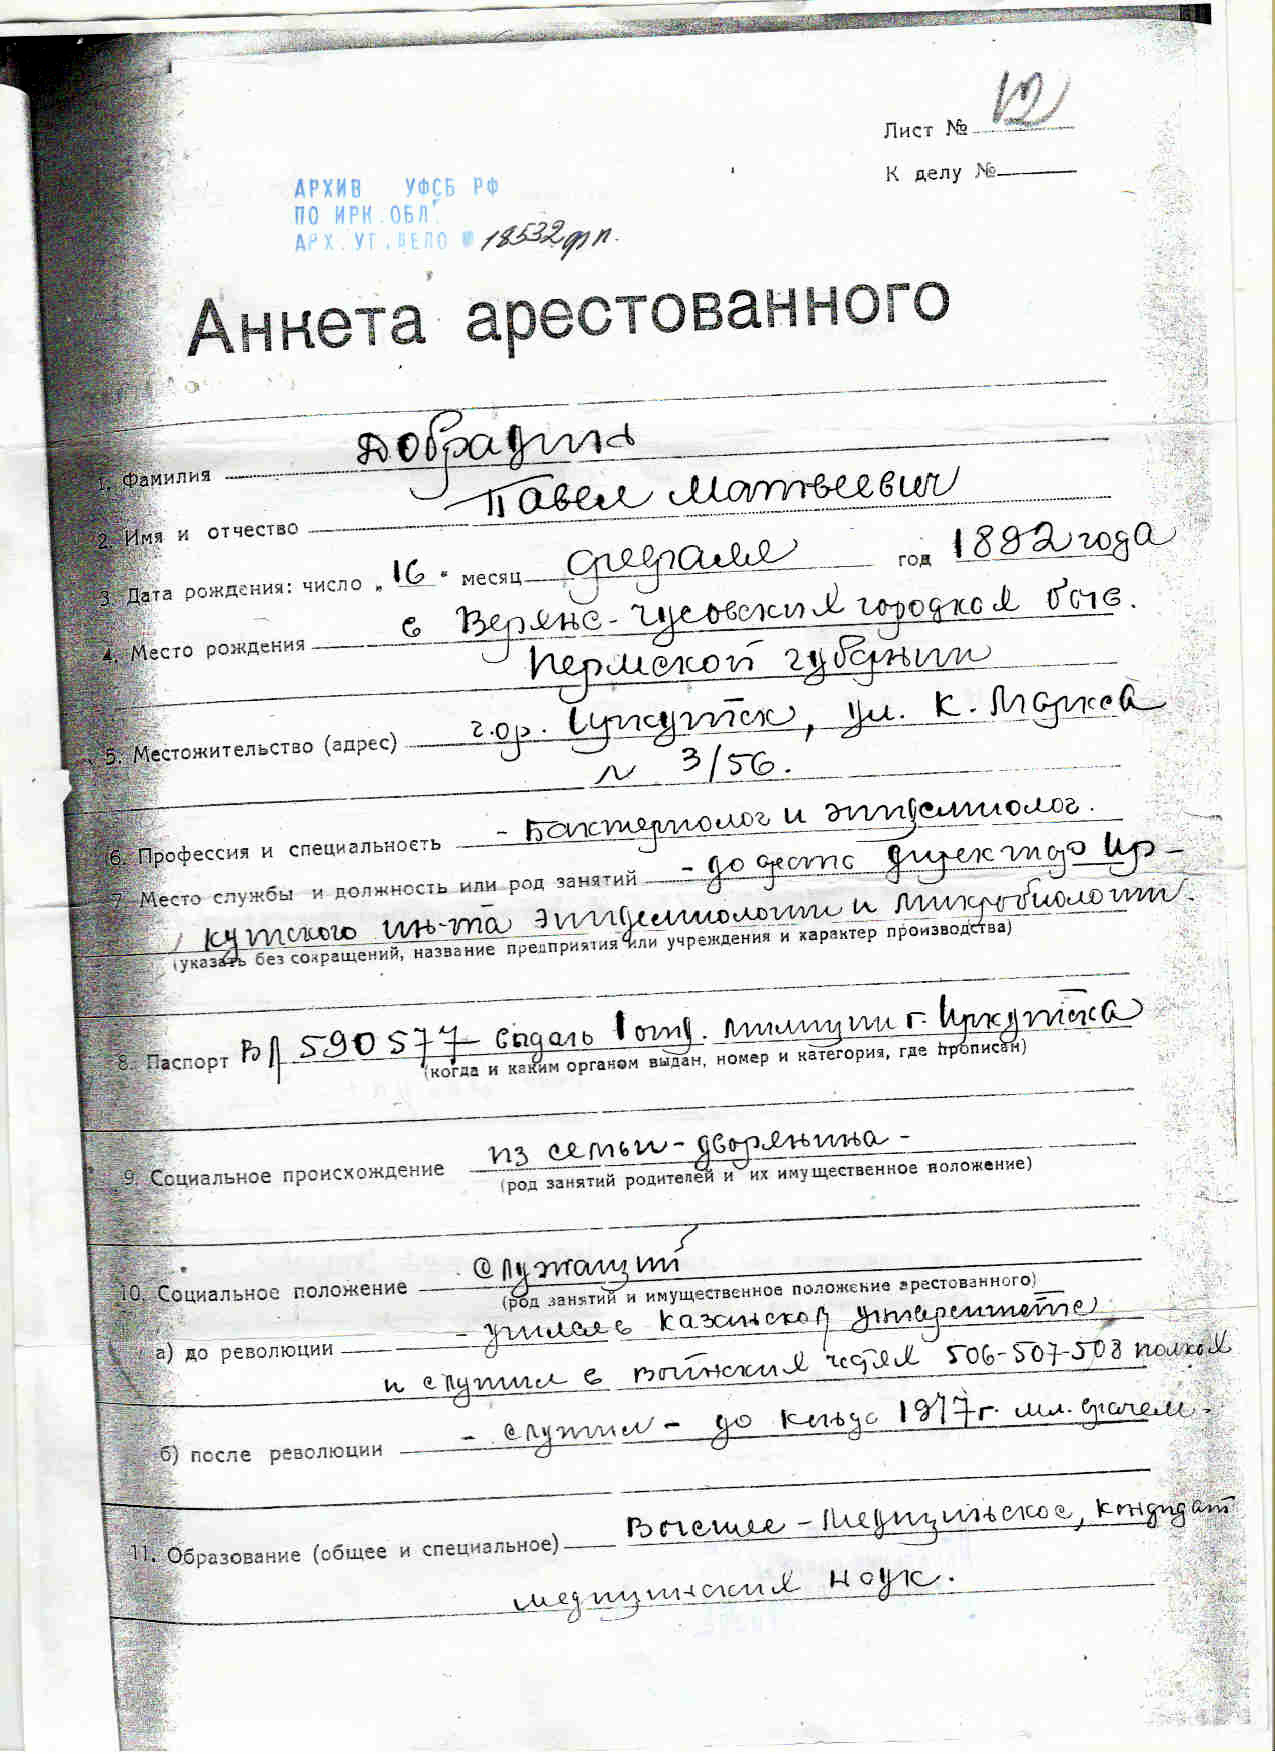 Лист № 12
К делу №
АРХИВ УФСБ РФ
ПО ИРК.ОБЛ.
АРХ.УГ.ДЕЛО № 18532 фп.
Анкета арестованного
1. Фамилия Добрадин
2. Имя и отчество Павел Матвеевич
3. Дата рождения: число „16“ месяц февраля год 1892 года
4. Место рождения в Верхне-Чусовских городках быв.
Пермской губернии
5. Местожительство (адрес) гор. Иркутск, ул. К. Маркса
№ 3/56.
6. Профессия и специальность - Бактериолог и эпидемиолог.
7. Место службы и должность или род занятий - до ареста директор Ир-
кутского ин-та эпидемиологии и микробиологии.
(указать без сокращений, название предприятия или учреждения и характер производства)
8. Паспорт 590577 - 1 отд. милиции г. Иркутска
(когда и каким органом выдан, номер и категория, где прописан)
9. Социальное происхождение из семьи - дворянина -
(род занятий родителей и их имущественное положение)
10. Социальное положение служащий
(род занятий и имущественное положение арестованного)
а) до революции - учился в Казанском университете
и служил в воинских частях 506-507-508 полках
б) после революции - служил - до конца 1917 г. мл. врачем -
11. Образование (общее и специальное) Высшее - Медицинское, кандидат
медицинских наук.